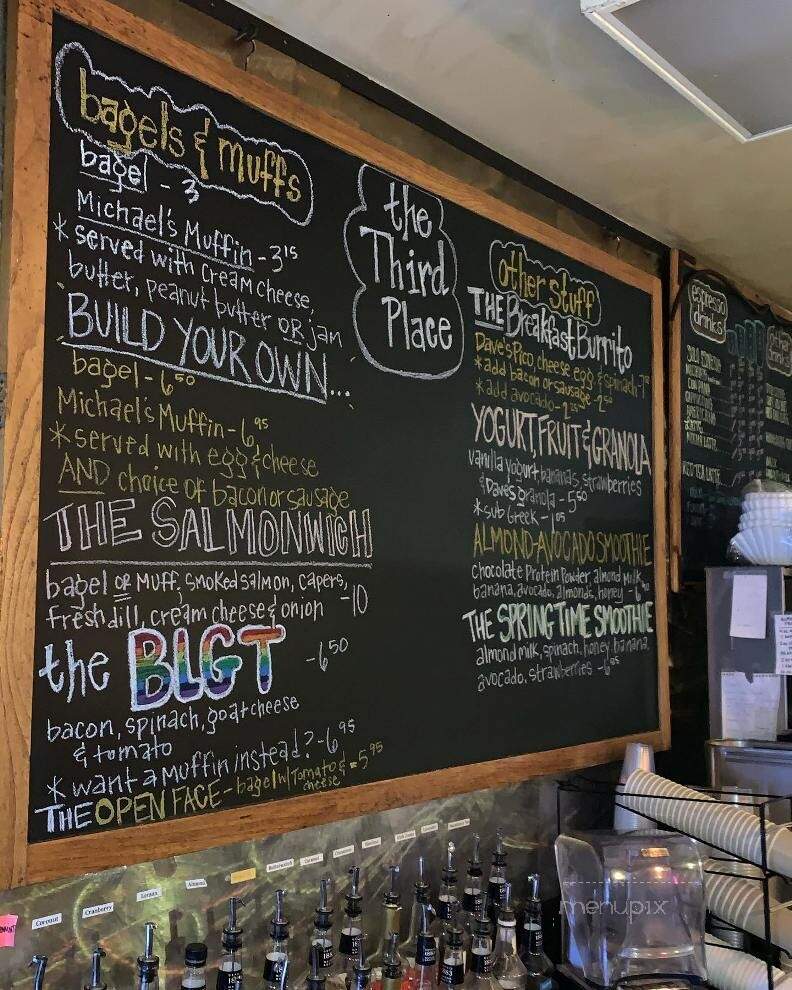 bagels & muffs
bagel - 3
Michael's Muffin - 3 15
* served with cream cheese,
butter, peanut butter OR jam
BUILD YOUR OWN...
bagel - 6 50
Michael's Muffin - 6 95
* served with egg & cheese
AND choice of bacon or sausage
THE SALMONWICH
bagel OR muff, smoked salmon, capers,
fresh dill, cream cheese & onion - 10
the BLGT - 6 50
bacon, spinach, goat cheese
& tomato
* want a muffin instead? - 6 95
THE OPEN FACE - bagel w/ Tomato & cheese = 5 95
the
Third
Place
other stuff
THE Breakfast Burrito
Dave's Pico, cheese, egg & spinach - 7
* add bacon or sausage - 2 50
* add avocado -
YOGURT, FRUIT & GRANOLA
vanilla yogurt, bananas, strawberries
& Dave's granola - 5 50
* sub Greek -
ALMOND-AVOCADO SMOOTHIE
chocolate protein powder, almond milk,
banana, avocado, almonds, honey - 6
THE SPRINGTIME SMOOTHIE
almond milk, spinach, honey, banana,
avocado, strawberries -
espresso
drinks
Coconut
Cranberry
Almond
Butterscotch
Caramel
menupix